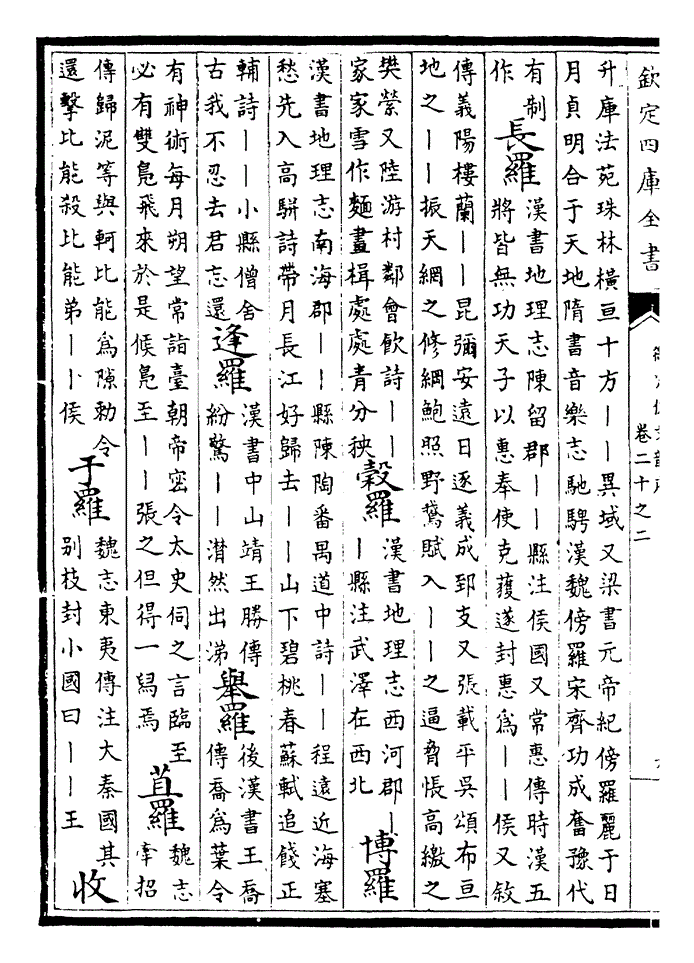 欽定四庫全書
卷二十之二
升庫法苑珠林橫亘十方丨丨異域又梁書元帝紀傍羅麗于日
月貞明合于天地隋書音樂志馳騁漢魏傍羅宋齊功成奮豫代
有制
作
長羅
漢書地理志陳留郡丨丨縣注侯國又常惠傳時漢五
將皆無功天子以惠奉使克獲遂封惠為丨丨侯又敘
傳義陽樓蘭丨丨昆彌安遠日逐義成郅支又張載平吳頌布亘
地之丨丨振天網之修綱鮑照野鵞賦入丨丨之逼脅悵高繳之
樊縈又陸游村鄰會飲詩丨丨
家家雪作麵畫楫處處青分秧
榖羅
漢書地理志西河郡丨
丨縣注武澤在西北
博羅
漢書地理志南海郡丨丨縣陳陶番禺道中詩丨丨程遠近海塞
愁先入高駢詩帶月長江好歸去丨丨山下碧桃春蘇軾追餞正
輔詩丨丨小縣僧舍
古我不忍去君志還
逢羅
漢書中山靖王勝傳
紛驚丨丨潸然出涕
舉羅
後漢書王喬
傳喬為葉令
有神術每月朔望常詣臺朝帝密令太史伺之言臨至
必有雙鳧飛來於是候鳧至丨丨張之但得一舄焉
苴羅
魏志
牽招
傳歸泥等與軻比能為隙勅令
還擊比能殺比能弟丨丨侯
于羅
魏志東夷傳注大秦國其
别枝封小國曰丨丨王
收